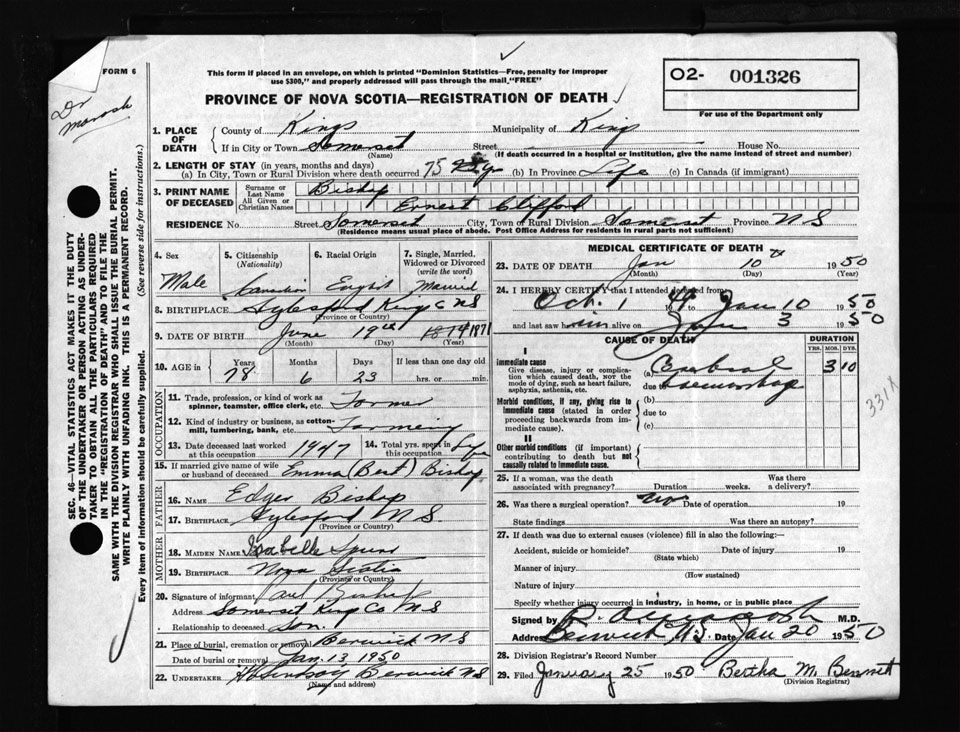 FORM 6
Dr
This form if placed in an envelope, on which is printed "Dominion Statistics—Free, penalty for improper
use $300," and properly addressed will pass through the mail "FREE"
O2- 001326
For use of the Department only
PROVINCE OF NOVA SCOTIA—REGISTRATION OF DEATH
1. PLACE OF DEATH County of Kings Municipality of King
If in City or Town Somerset Street House No.
(Name) (If death occurred in a hospital or institution, give the name instead of street and number)
2. LENGTH OF STAY (in years, months and days)
(a) In City, Town or Rural Division where death occurred 75 (b) In Province Life (c) In Canada (if immigrant)
3. PRINT NAME OF DECEASED Surname or Last Name Bishop
All Given or Christian Names Ernest Clifford
RESIDENCE No. Street Somerset City, Town or Rural Division Somerset Province N S
(Residence means usual place of abode. Post Office Address for residents in rural parts not sufficient)
4. Sex 5. Citizenship (Nationality) 6. Racial Origin 7. Single, Married, Widowed or Divorced (write the word)
Male Canadian English Married
8. BIRTHPLACE Aylesford King C NS
(Province or Country)
9. DATE OF BIRTH June 19th 1871
(Month) (Day) (Year)
10. AGE in Years Months Days If less than one day old
78 6 23 hrs. or min.
OCCUPATION
11. Trade, profession, or kind of work as
spinner, teamster, office clerk, etc. Farmer
12. Kind of industry or business, as cotton-
mill, lumbering, bank, etc. Farming
13. Date deceased last worked at this occupation 1947 14. Total yrs. spent in this occupation Life
15. If married give name of wife
or husband of deceased Emma (Bert) Bishop
FATHER
16. NAME Edger Bishop
17. BIRTHPLACE Aylesford N S.
(Province or Country)
MOTHER
18. MAIDEN NAME Isabelle
19. BIRTHPLACE Nova Scotia
(Province or Country)
20. Signature of informant Bishop
Address Somerset King Co N S
Relationship to deceased Son
21. Place of burial, cremation or removal Berwick N S
Date of burial or removal Jan. 13 1950
22. UNDERTAKER Berwick NS
(Name and address)
MEDICAL CERTIFICATE OF DEATH
23. DATE OF DEATH Jan 10th 1950
(Month) (Day) (Year)
24. I HEREBY CERTIFY that I attended deceased from
Oct. 1 1949 Jan 10 1950
and last saw him alive on Jan 3 1950
CAUSE OF DEATH DURATION
YRS. MOS. DYS.
I
Immediate cause
Give disease, injury or complica-
tion which caused death, not the
mode of dying, such as heart failure,
asphyxia, asthenia, etc.
(a) Cerebral 3 10
due to haemorrhage
Morbid conditions, if any, giving rise to
immediate cause (stated in order
proceeding backwards from im-
mediate cause).
(b)
due to
(c)
331X
II
Other morbid conditions (if important)
contributing to death but not
causally related to immediate cause.
25. If a woman, was the death
associated with pregnancy? Duration weeks. Was there a delivery?
26. Was there a surgical operation? No Date of operation 19
State findings Was there an autopsy?
27. If death was due to external causes (violence) fill in also the following:
Accident, suicide or homicide? Date of injury 19
(State which)
Manner of injury
(How sustained)
Nature of injury
Specify whether injury occurred in industry, in home, or in public place
Signed by M.D.
Address Berwick N.S. Date Jan 20 1950
28. Division Registrar's Record Number
29. Filed January 25 1950 Bertha M. Bennett
(Division Registrar)
SEC. 46—VITAL STATISTICS ACT MAKES IT THE DUTY
OF THE UNDERTAKER OR PERSON ACTING AS UNDER-
TAKER TO OBTAIN ALL THE PARTICULARS REQUIRED
IN THE "REGISTRATION OF DEATH" AND TO FILE THE
SAME WITH THE DIVISION REGISTRAR WHO SHALL ISSUE THE BURIAL PERMIT.
WRITE PLAINLY WITH UNFADING INK. THIS IS A PERMANENT RECORD.
Every item of information should be carefully supplied. (See reverse side for instructions.)